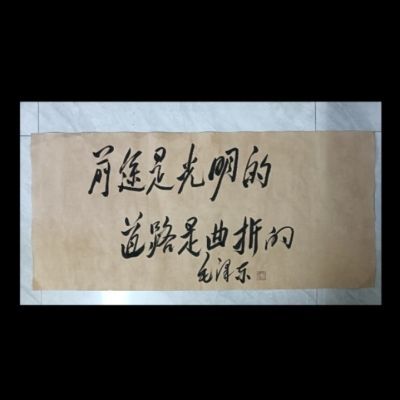 前途是光明的
道路是曲折的
毛泽东